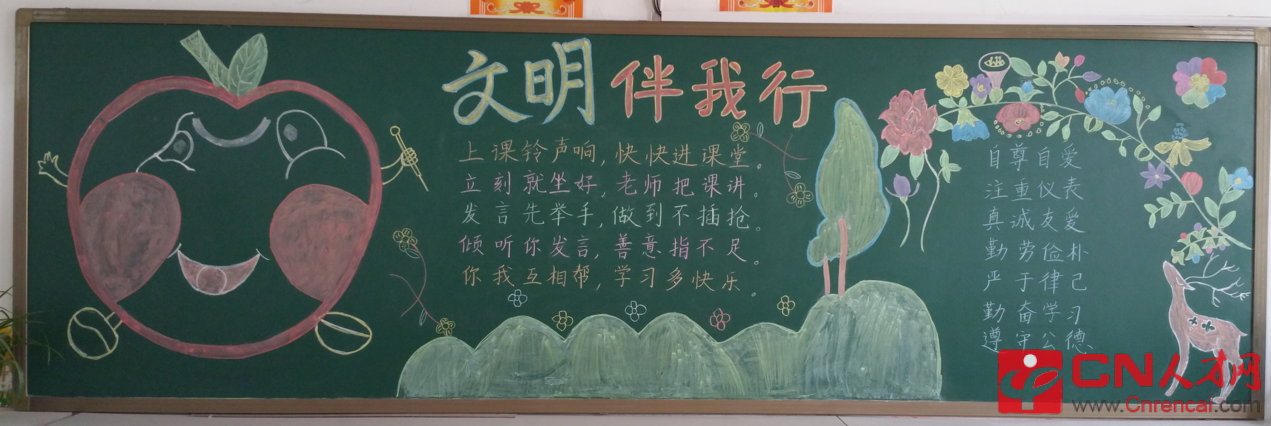 文明伴我行
上课铃声响,快快进课堂。
立刻就坐好,老师把课讲。
发言先举手,做到不插抢。
倾听你发言,善意指不足。
你我互相帮,学习多快乐。
自尊自爱
注重仪表
真诚友爱
勤劳俭朴
严于律己
勤奋学习
遵守公德
CN人才网
www.Cnrencai.com